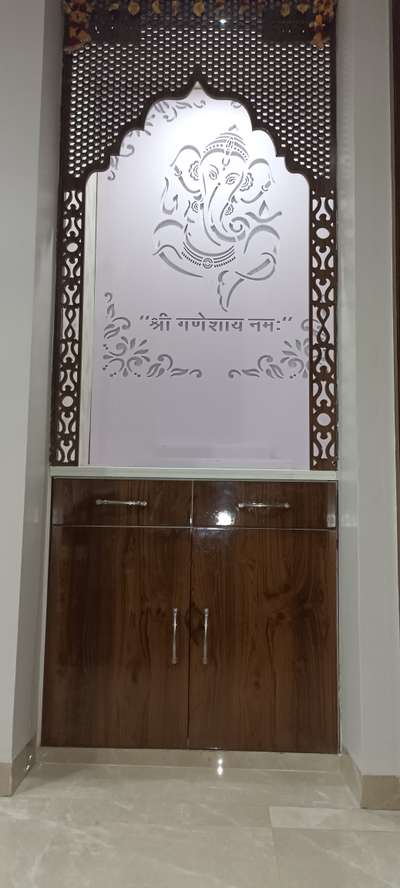 “श्री गणेशाय नमः”